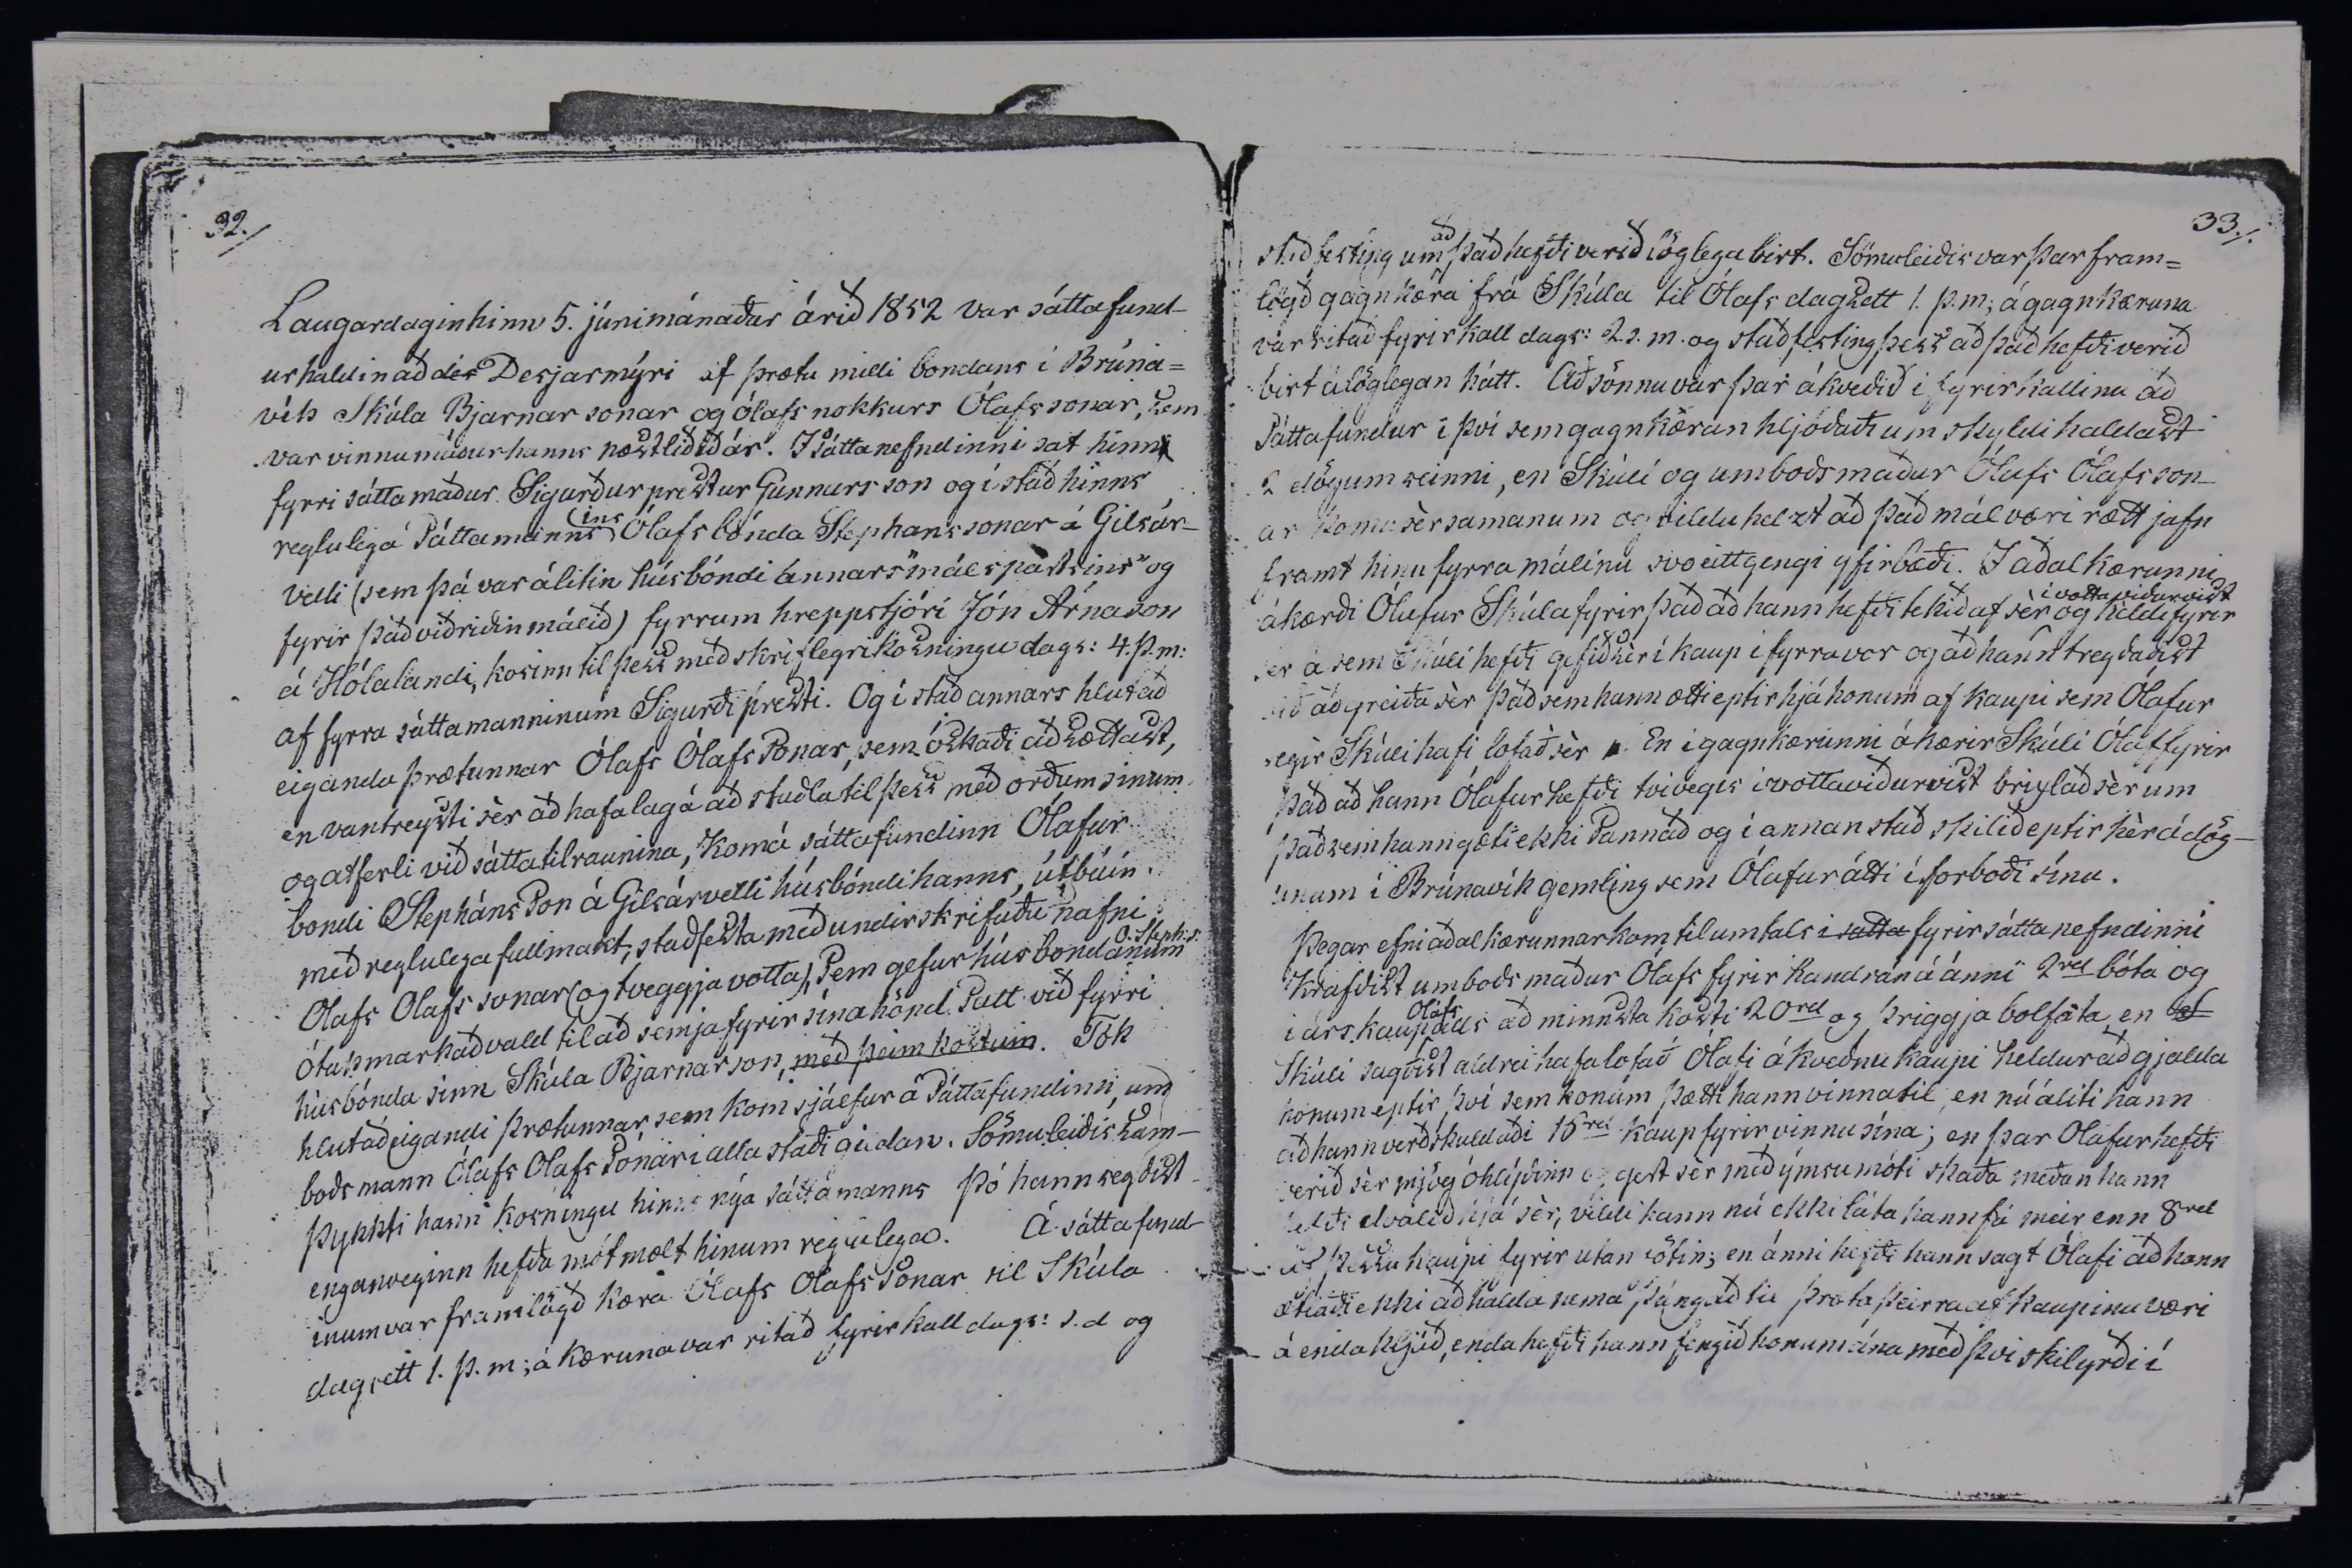 32./
Laugardaginn hinn 5. júnimánaðar árið 1852 var sáttafund-
ur haldin að des Desjarmýri af þrætu milli bondans i Brúna=
vík Skúla Bjarnar sonar og Ólafs nokkurs Ólafssonar, sem
var vinnumaður hanns næstliðið ár. I sáttanefndinni sat hinn
fyrri sáttamaður Sigurður prestur Gunnarsson og í stað hinns
reglulega sáttamanns ins Ólafs bónda Stephanssonar á Gilsár-
velli (sem þá var álitin húsbóndi annars "málspartsins" og
fyrir það viðriðin málið) fyrrum hreppstjóri Jón Árnason
á Hólalandi, kosinn til þess með skriflegri kosningu dags: 4. þ.m:
af fyrra sáttamanninum Sigurði presti. Og í stað annars hlutað
eiganda þrætunnar Ólafs Ólafs Sonar, sem óskaði að sættast,
en vantreysti sèr að hafa lag á að stuðla til þess með orðum sinum
og atferli við sáttatilraunina, kom á sáttafundinn Ólafur
bondi Stepháns Son á Gilsárvelli húsbóndi hanns, útbúin
með reglulega fullmakt, staðfesta með undirskrifuðu nafni
Olafs Olafs sonar (og tveggja votta), Sem gefur húsbondanum O. Steph:s.
ótakmarkað vald til að semja fyrir sína hönd Satt við fyrri
húsbónda sinn Skúla Bjarnarson, með þeim kostum. Tók
hlutaðeigandi þrætunnar, sem kom sjálfur á Sáttafundinn, um
boðsmann Ólafs Olafs Sonar i alla staði gildan. Sömuleiðis sam-
þykkti hann kosningu hinns nýa sáttamanns þó hann segðist
enganveginn hefða mótmælt hinum reglulega. Á sáttafund-
inum var framlögð kæra Ólafs Olafs Sonar til Skúla
dagsett 1. þ.m; á kæruna var ritað fyrirkall dags: s.d og
33./.
staðfesting um að það hefði verið löglega birt. Sömuleiðis var þar fram=
lögð gagnkæra frá Skúla til Ólafs dagsett 1. þ.m; á gagnkæruna
var ritað fyrirkall dags: 2. s.m. og staðfesting þess að það hefði verið
birt á löglegan hátt. Að sönnu var þar ákveðið i fyrirkallinu að
Sáttafundur i því sem gagnkæran hljóðaði um skyldi haldast
2 dögum seinni, en Skúli og umboðsmaður Ólafs Ólafsson-
ar komu sèr saman um og vildu helzt að það mál væri rætt jafn
framt hinu fyrra málinu svo eitt gengi yfir bæði. I aðalkærunni
ákærði Olafur Skúla fyrir það að hann hefði tekið af sèr og heldi fyrir i votta viðurvist
sèr á sem Skúli hefði gefið sèr i kaup i fyrra vor og að hann tregðaðist
við að greiða sèr það sem hann ætti eptir hjá honum af kaupi sem Ólafur
segir Skúli hafi lofað sèr. En i gagnkærunni ákærir Skúli Ólaf fyrir
það að hann Ólafur hefði tvivegis i votta viðurvist brigslað sèr um
það sem hann gæti ekki Sannað og i annan stað skilið eptir hèr á dög-
unum i Brúnavík gemling sem Ólafur átti í forboði sínu.
Þegar efni aðalkærunnar kom til umtals i satta fyrir sáttanefndinni
krafðist umboðsmaður Ólafs fyrir handrán á ánni 2rd bóta og
i árs kaup Olafs að minnsta kosti 20rd og þriggja bolfata en
Skúli sagðist aldrei hafa lofað Olafi ákveðnu kaupi heldur að gjalda
honum eptir því sem honum þætti hann vinna til, en nú áliti hann
að hann verðskuldaði 15rd kaup fyrir vinnu sína; en þar Olafur hefði
verið sèr mjög óhlýðinn og gert sèr með ýmsu móti skaða meðan hann
hefði dvalið hjá sèr, vildi hann nú ekki láta hann fá meir enn 8rd
af þessu kaupi fyrir utan fötin; en ánni hefði hann sagt Ólafi að hann
ætlaði ekki að halda nema þángað til þræta þeirra af kaupinu væri
á enda kljáð, enda hefði hann fengið honum ána með því skilyrði í